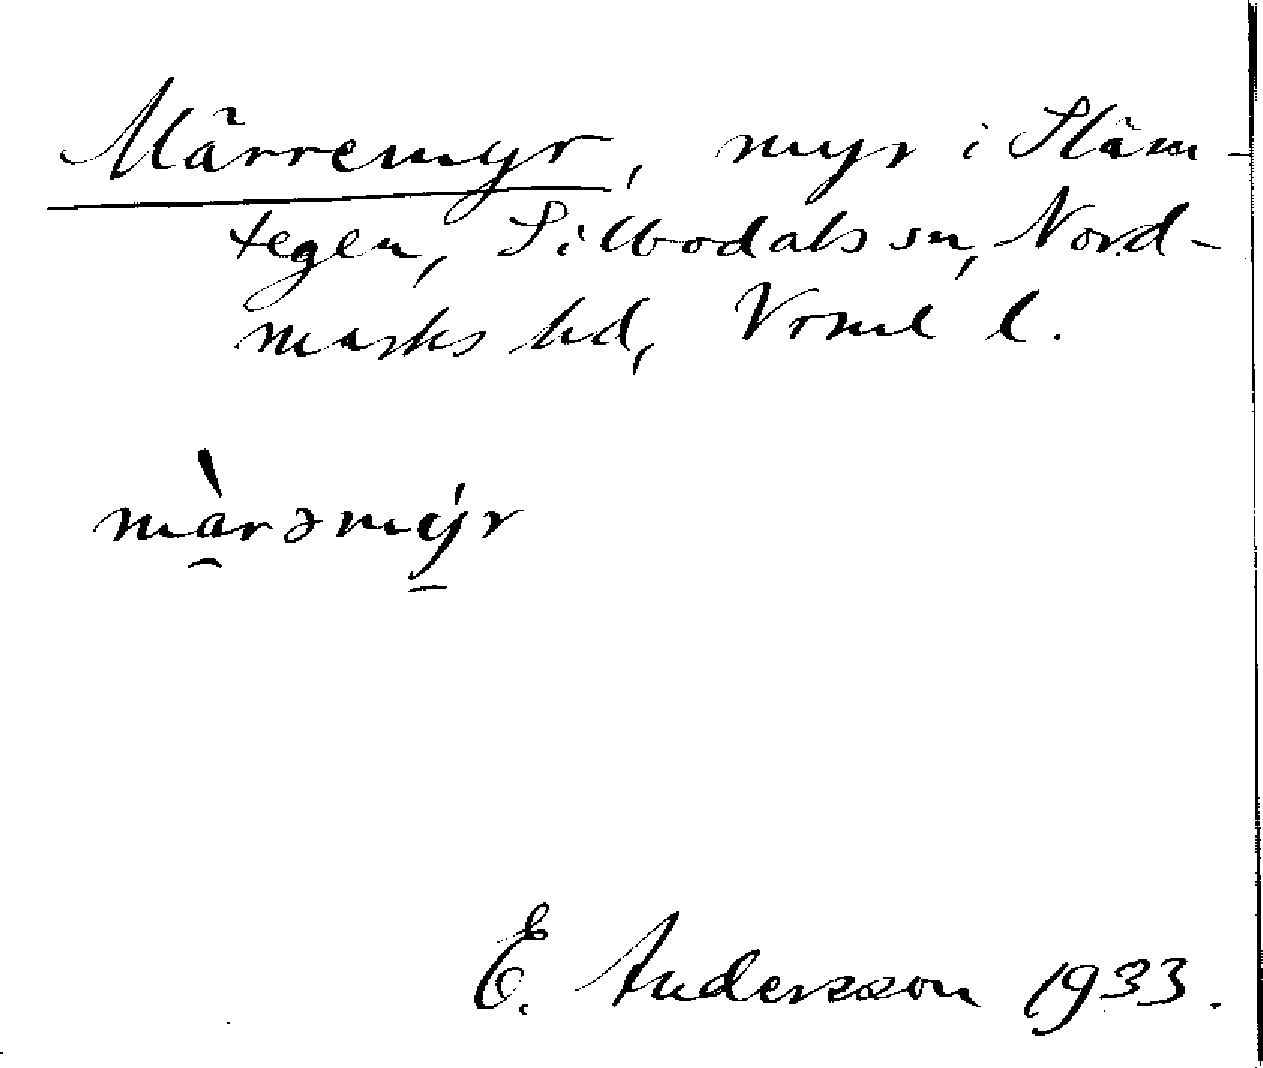 Märremyr, myr i Släm-
tegen, Silbodals sn, Nord-
marks hd, Vrml l.
màrəmýr
E. Andersson 1933.